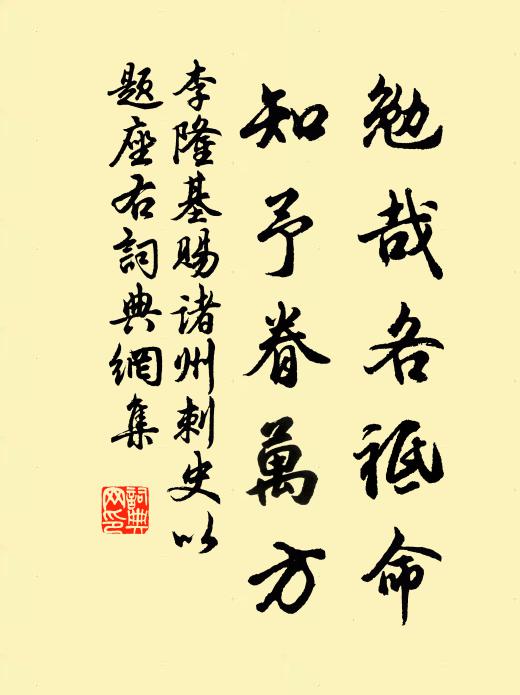 勉哉各祗命
知予眷萬方
李隆基賜诸州刺史以
題座右詞典網集
詞典网印